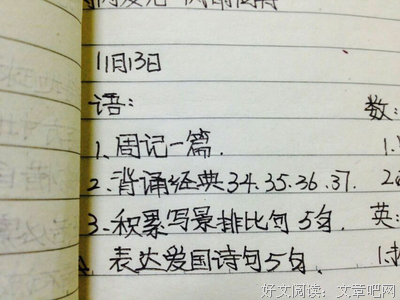 11日13日
语:
数:
1.周记一篇.
1.
2.背诵经典34.35.36.37.
2
3.积累写景排比句 5句.
英:
表达爱国诗句5句.
1.
好文阅读: 文章吧网